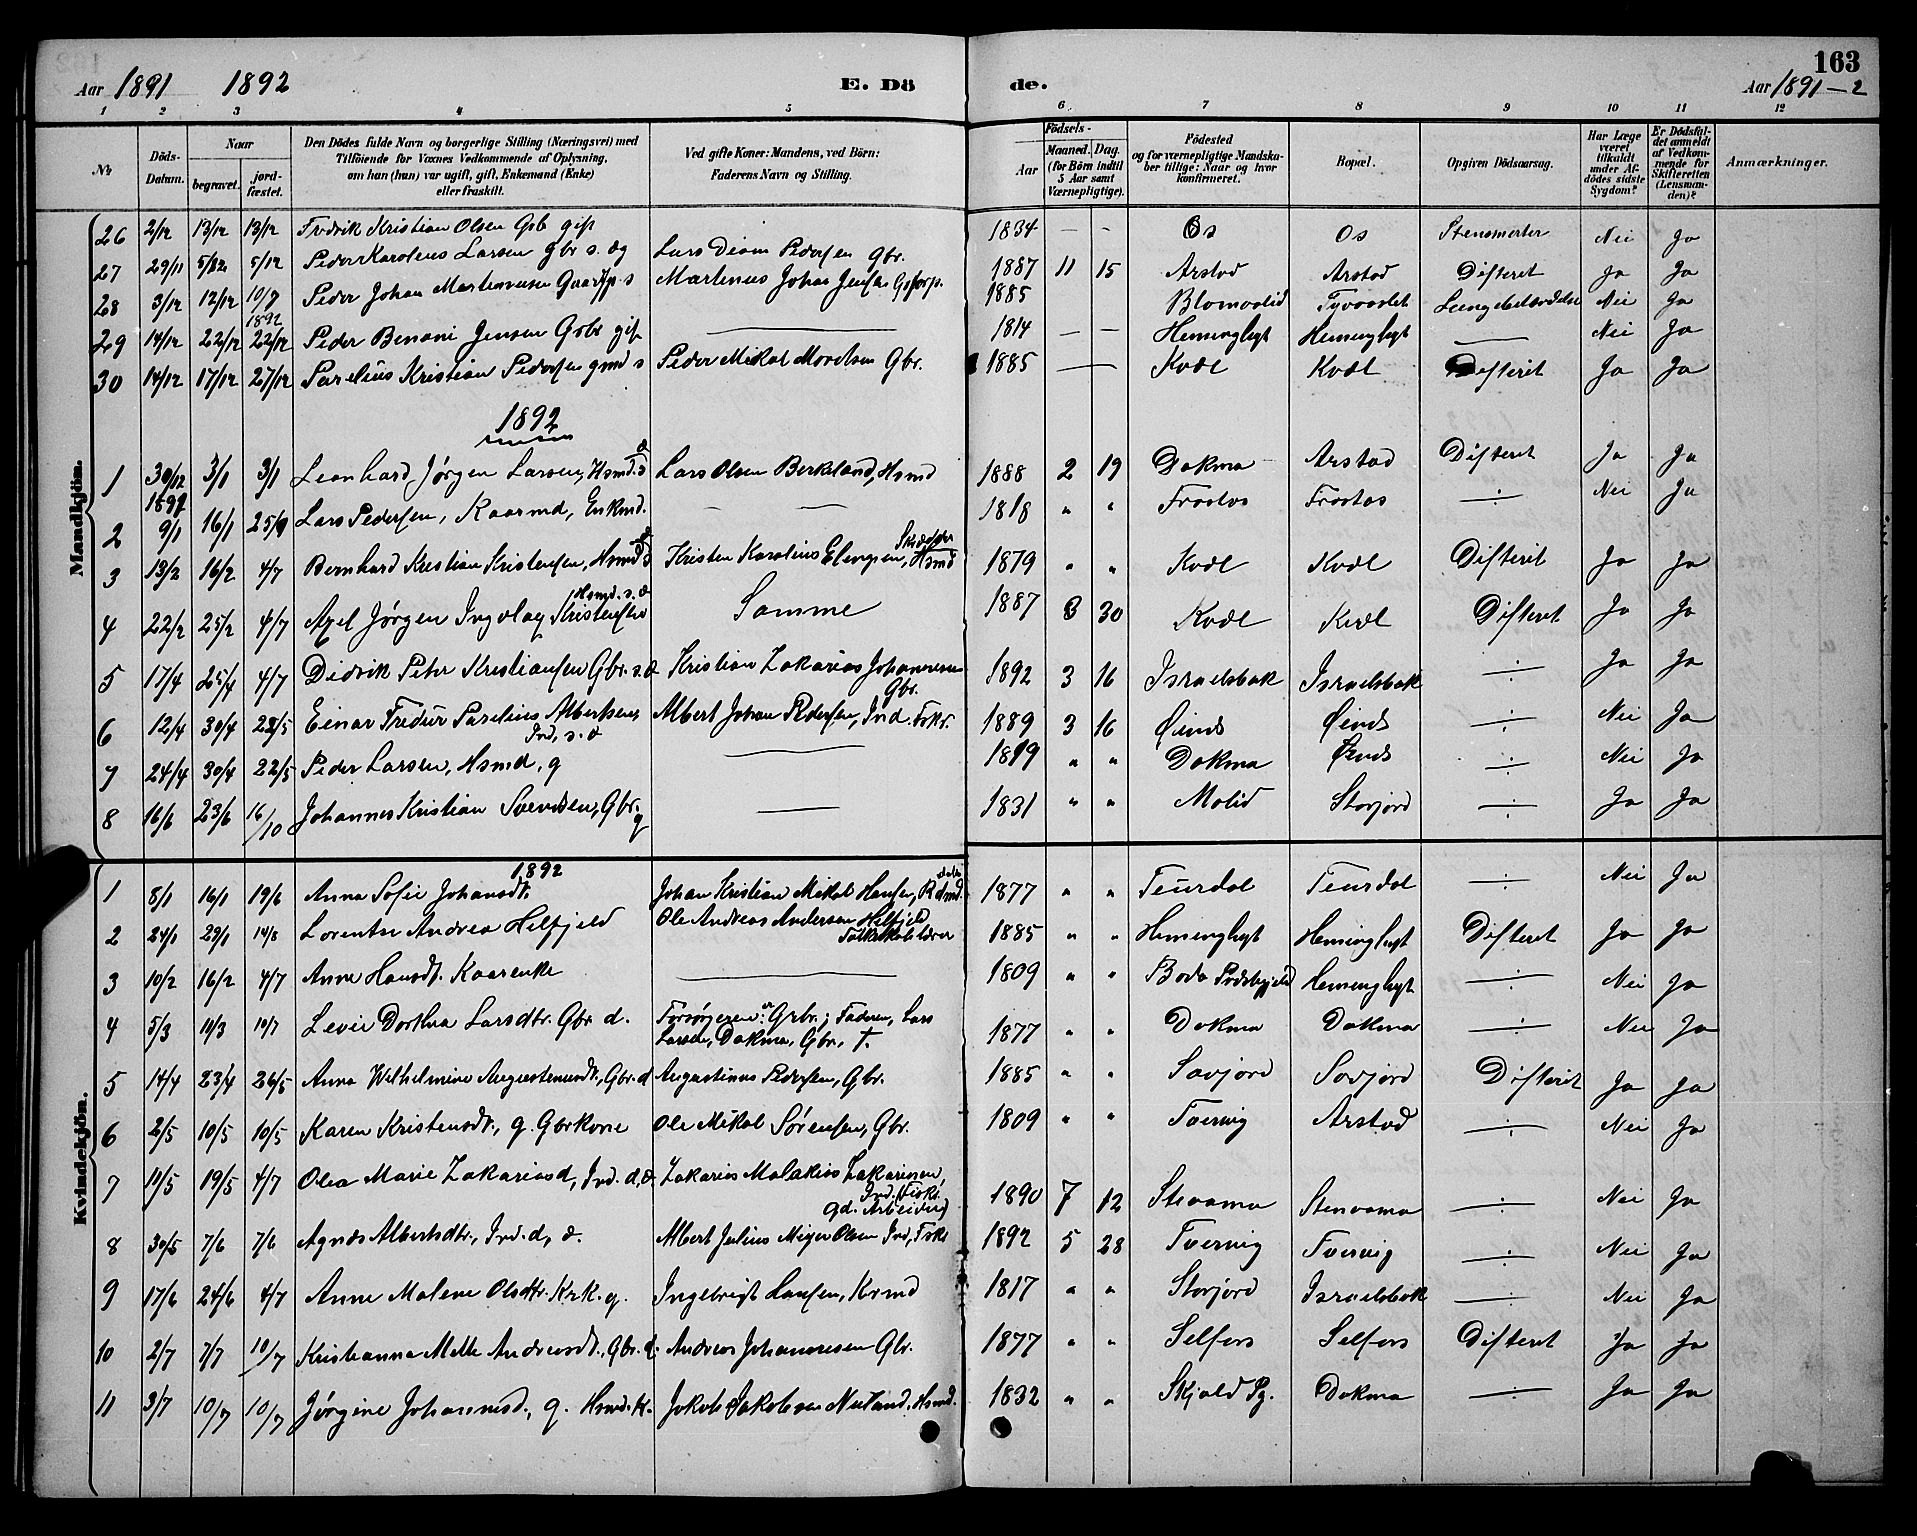 163
Aar 1891 1892 E. Dö de. Aar 1891-2
1 2 3 4 5 6 7 8 9 10 11 12
No
Döds-Datum.
Naar
begravet.
jord-fæstet.
Den Dödes fulde Navn og borgerlige Stilling (Næringsvei) med
Tilföiende for Voxnes Vedkommende af Oplysning,
om han (hun) var ugift, gift, Enkemand (Enke)
eller fraskilt.
Ved gifte Koner: Mandens, ved Börn:
Faderens Navn og Stilling.
Födsels-
Aar
Maaned. Dag.
(for Börn indtil
5 Aar samt
Værnepligtige).
Födested
og for værnepligtige Mandska-
ber tillige: Naar og hvor
konfirmeret.
Bopæl.
Opgiven Dödsaarsag.
Har Læge
været
tilkaldt
under Af-
dödes sidste
Sygdom?
Er Dödsfal-
det anmeldt
af Vedkom-
mende for
Skifteretten
(Lensman-
den)?
Anmærkninger.
Mandkjön.
26 2/12 13/12 13/12 Fredrik Kristian Olsen Gb gift 1834 – – Os Os Nei Ja
27 29/11 5/12 5/12 Peder Karolius Larsen gbr s. Lars Pedersen Gbr. 1887 11 15 Arstad Arstad Difteret Ja Ja
28 3/12 12/12 10/7 1892 Peder Johan Martinussen s Martinus Johan Jensen 1885 Nei Ja
29 14/12 22/12 22/12 Peder Benoni Jensen Gbr gift 1814 – – Hemingligt Hemingligt — Nei Ja
30 14/12 17/12 27/12 Parelius Kristian Pedersen gmd s Peder Mikal Gbr. 1885 — Kvæl Kvæl Difteret Ja Ja
1892
1 30/12 1891 3/1 3/1 Leonhard Jørgen Larsen, Hsmd. s Lars Olsen Berkeland, Hsmd 1888 2 19 Dokmo Arstad Difteret Ja Ja
2 9/1 16/1 Lars Pedersen, Kaarmd, Enkmd. – – 1818 " " Frostas Frostas ÷ Nei Ja
3 13/2 16/2 4/7 Bernhard Kristian Kristensen, Hsmd s Kristen Karolius Elengsen, Hsmd 1879 " " Kvæl Kvæl Difteret Ja Ja
4 22/2 25/2 4/7 Axel Jørgen Ingolay Kristensen Hsmd. s. æ Samme 1887 8 30 Kvæl Kvæl Difteret Ja Ja
5 17/4 25/4 4/7 Didrik Peter Kristiansen Gbr. s. æ Kristian Zakarias Johannesen Gbr. 1892 3 16 Israelsbak Israelsbak ÷ Ja Ja
6 12/4 30/4 22/5 Einar Parelius Albertsen, Ind, s. æ Albert Johan Pedersen, Ind. Fskr. 1889 3 16 Øines Øines ÷ Nei Ja
7 24/4 30/4 22/5 Peder Larsen, Hsmd, g — 1819 " " Dokmo Øines ÷ Nei Ja
8 16/6 23/6 16/10 Johannes Kristian Svendsen, Gbr. g — 1831 " " Molid Storjord ÷ Ja Ja
Kvindekjön.
1892
1 8/1 16/1 19/6 Anna Sofie Johansdt. Johan Kristian Mikal Hansen, 1877 " " Teurdal Teurdal ÷ Nei Ja
2 24/1 29/1 14/8 Lorentse Andrea Hilfjeld Ole Andreas Andersen Hilfjeld, Folkeskolelærer 1885 " " Hemingligt Hemingligt Difteret Ja Ja
3 10/2 16/2 4/7 Anne Hansdt. Kaarenke — 1809 " " Bodø Hemingligt ÷ Nei Ja
4 5/3 10/7 Dorthea Larsdtr. Gbr d. Forsørgeren: Gbr.; Faderen, Lars Larsen, Dokmo, Gbr, †. 1877 " " Dokmo Dokmo ÷ Nei Ja
5 14/4 23/4 26/5 Anna Wilhelmine Augustinusdt., Gbr. d Augustinus Pedersen, Gbr. 1885 " " Sorjord Sorjord Difteret Ja Ja
6 2/5 10/5 10/5 Karen Kristensdt., g. Gbrkone Ole Mikal Sørensen, Gbr. 1809 " " Tvervig Arstad ÷ Nei Ja
7 11/5 19/5 4/7 Olea Marie Zakariasd, Ind. d, æ. Zakarias Malakias Zakariasen, Ind. Fiskr. 1890 7 12 Stenaamo Stenaamo ÷ Nei Ja
8 30/5 7/6 7/6 Agnes Albertsdtr., Ind. d, æ. Albert Julius Meyer Olsen Ind, Fskr 1892 5 28 Tvervig Tvervig ÷ Nei Ja
9 17/6 24/6 4/7 Anne Malene Olsdtr. Krk. g. Ingebrigt Hansen, Krmd 1817 " " Storjord Israelsbak ÷ Nei Ja
10 2/7 7/7 10/7 Kristianna Mette Andreasdt., Gbr. d. Andreas Johannesen Gbr. 1877 " " Selfors Selfors Difteret Ja Ja
11 3/7 10/7 10/7 Jørgine Johannesd., g. Hsmd. k. Jakob Jakobsen Hsmd. 1832 " " Skjold Pg. Dokmo ÷ Ja Ja